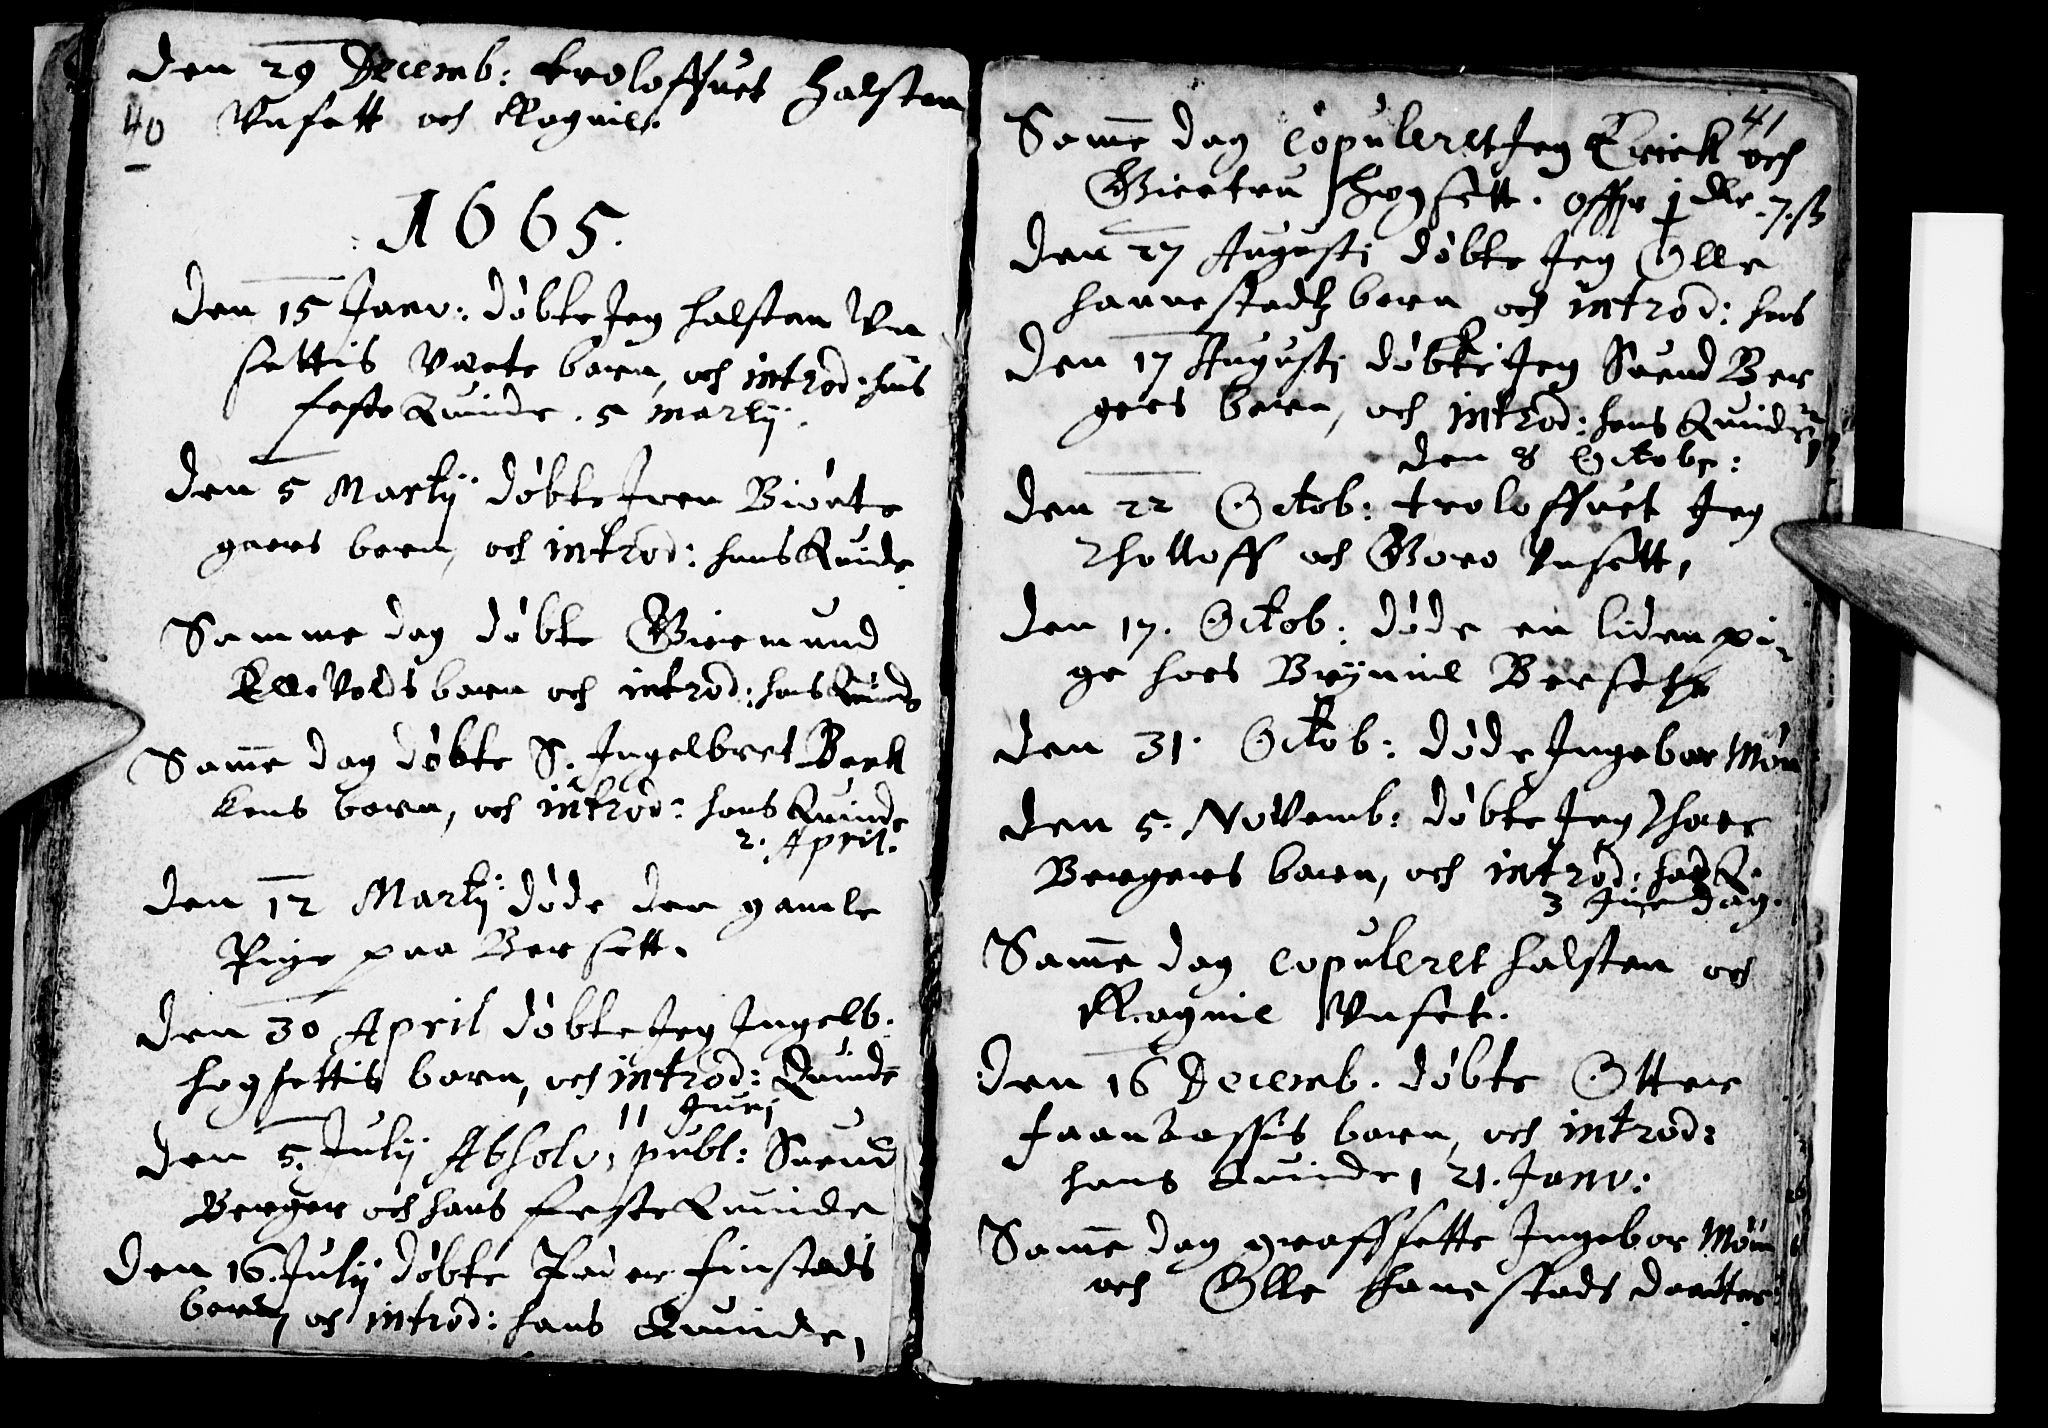 Den 29 Decemb: troloffuet Halsten
40 Vnsett och Ragnil.
1665.
Den 15 Janv: døbte Jeg Halsten Vn
settis Vecte barn, och introd: hans
festeQuinde. 5 Martij.
Den 5 Martij døbte Iver Biørte
gaers barn, och introd: hans Quinde
Samme dag døbte Giermund
Ellevolds barn och introd: hans Quinde
Same dag døbte S. Ingelbret Berk
kens barn, och introd: hans Quinde
2. April.
Den 12 Martij døde den gamle
Pige paa Bersett.
Den 30 April døbte Jeg Ingelb.
Hogsettis barn, och introd: Quinde
11 Junj
Den 5. Julij Absolv: publ: Suend
Berger och hans festeQuinde
Den 16. Julij døbte Peder Finstads
barn, och introd: hans Quinde,
41
Same dag copuleret Jeg Erick och
Giertru Hogsett. offr 1 dlr. 7. ß
Den 27 Augustj døbte Jeg Olle
Hannestadtz barn och introd: hans
Den 17 Augustj døbte Jeg Suend Ber
gers barn, och introd: hans Quinde
den 8 Octobr:
Den 22 Octob: troloffuet Jeg
Rholloff och Goro Vnsett,
Den 17. Octob: døde en liden pi-
ge hoes Brynnil Bersett
Den 31. Octob: døde Ingebor Møn
Den 5. Novemb: døbte Jeg Thoer
Bergers barn, och introd: hans Q.
3 Juledag.
Same dag copuleret Halsten och
Ragnil Vnset.
Den 16 Decemb. døbte Otter
Faanaassis barn, och introd:
hans Quinde, 21. Janv:
Same dag graffsette Ingebor Møn
och Olle Hanestads daatter